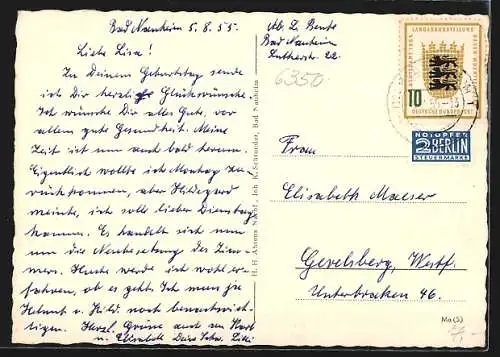 Bad Nauheim 5.8.55.
Liebe Lisa!
Zu Deinem Geburtstag sende
ich Dir herzliche Glückwünsche.
Ich wünsche Dir alles Gute, vor
allem gute Gesundheit. Meine
Zeit ist nun auch bald herum.
Eigentlich wollte ich Montag zu-
rückkommen, aber Hildegard
meinte, ich solle lieber Dienstag
kommen. Es handelt sich nun
um die Neubesetzung des Zim-
mers. Heute werde ich wohl er-
fahren, ob es geht. Ich muss ja
Helmut u. Hild. noch benachrich-
tigen. Herzl. Grüsse auch an Karl
u. Elisabeth Deine Schw. Lilli
H. H. Ahrens Nachf., Inh. K. Schroeder, Bad Nauheim
Abs. L. Bente
Bad Nauheim
Lutherstr. 22
6350
LANDESAUSSTELLUNG
BADEN-WÜRTTEMBERG
10
DEUTSCHE BUNDESPOST
NOTOPFER
2 BERLIN
STEUERMARKE
Frau
Elisabeth Maeser
Gevelsberg, Westf.
Unterbrocken 46.
Ma (5)